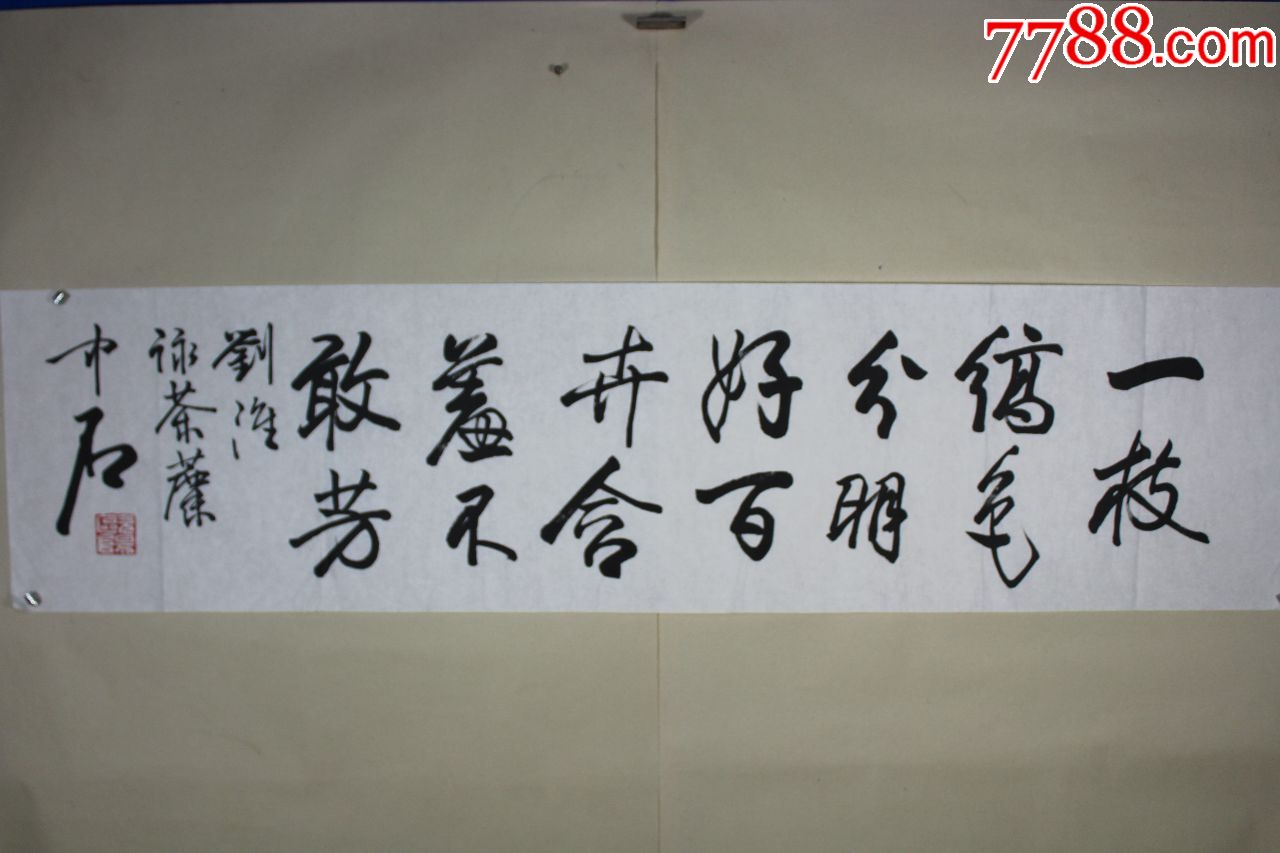 7788.com
一枝
縞色
分明
好百
卉含
羞不
敢芳
劉淮
詠荼蘼
中石